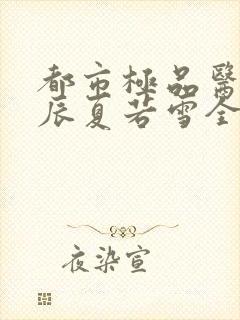 都市極品醫
辰夏若雪全
夜染宣